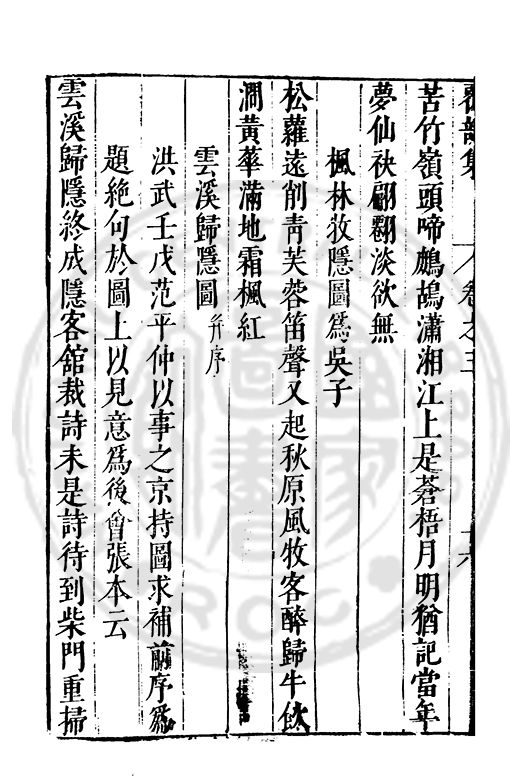 苦竹嶺頭啼鷓鴣瀟湘江上是蒼梧月明猶記當年
夢仙袂翩翻淡欲無
楓林牧隱圖爲吳子
松蘿遠削青芙蓉笛聲又起秋原風牧客醉歸牛飲
澗黃華滿地霜楓紅
雲溪歸隱圖并序
洪武壬戌范平仲以事之京持圖求補前序爲
題絶句於圖上以見意爲後會張本云
雲溪歸隱終成隱客舘裁詩未是詩待到柴門重掃